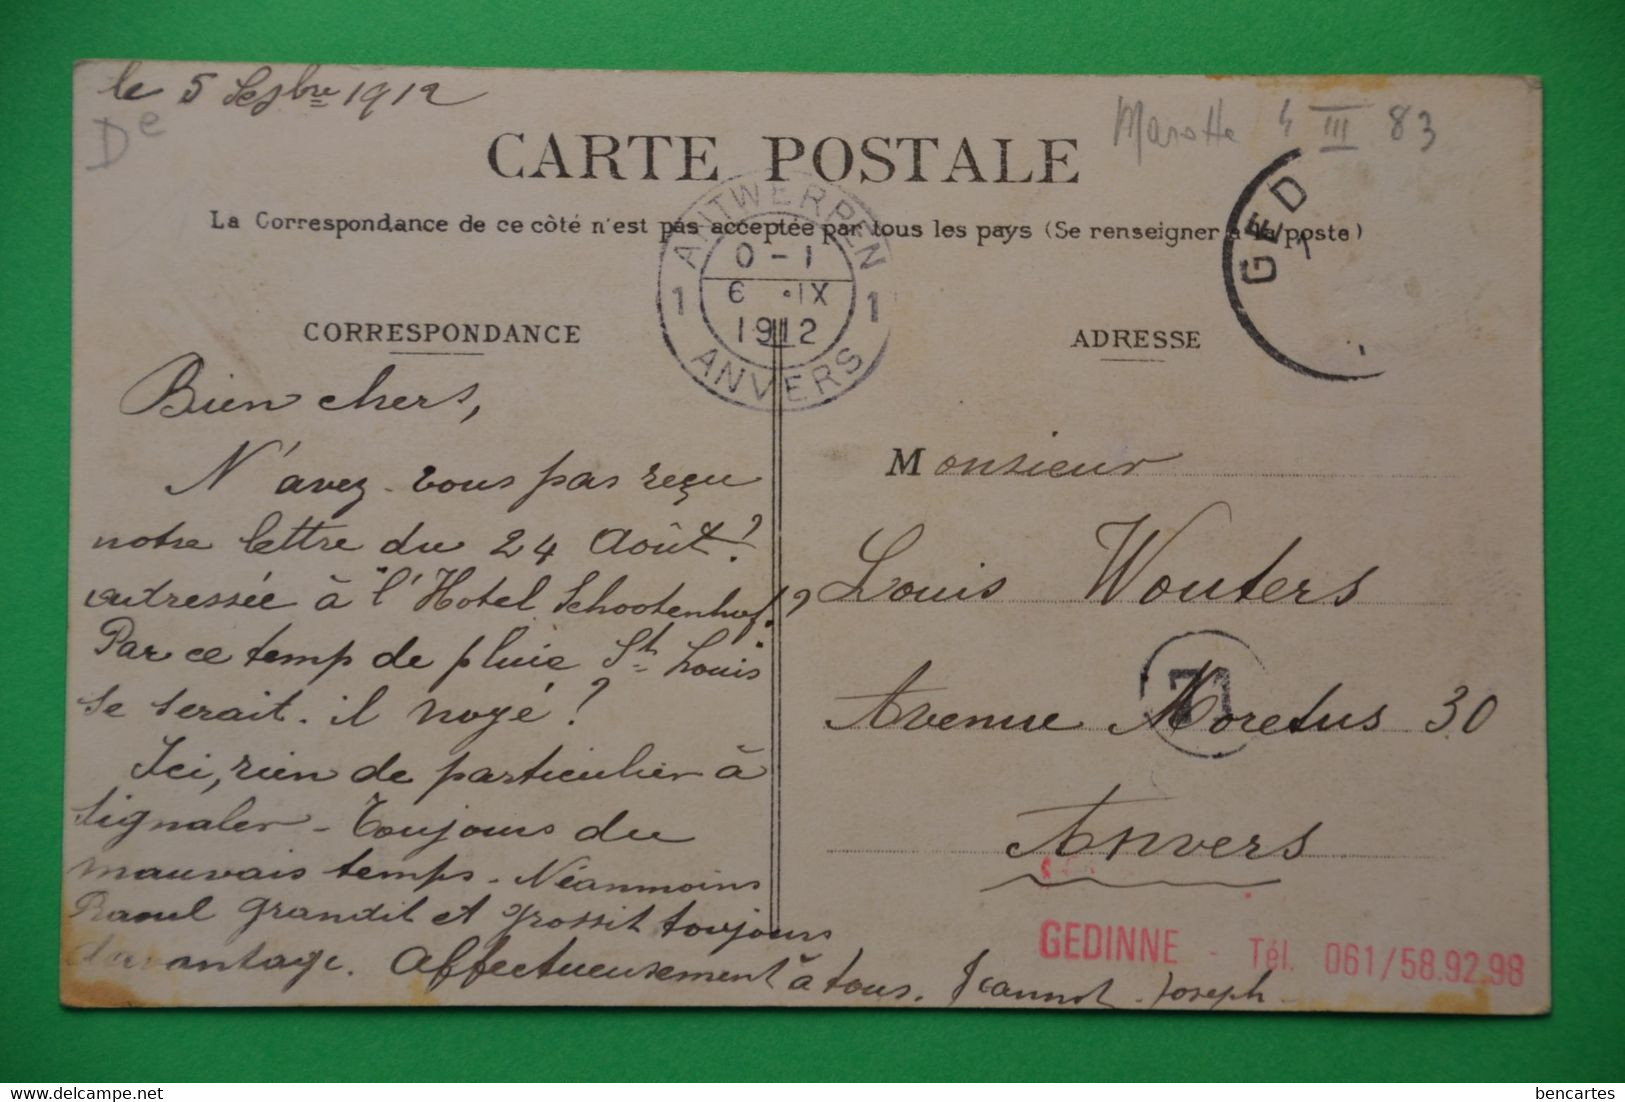 le 5 Sepbre 1912
De
Marotte 4 III 83
CARTE POSTALE
La Correspondance de ce côté n'est pas acceptée par tous les pays (Se renseigner à la poste)
ANTWERPEN
0-1
1 6 .IX 1
1912
ANVERS
GED
CORRESPONDANCE
Bien chers,
N'avez-vous pas reçu
notre lettre du 24 Août?
adressée à l'Hotel Schootenhof.?
Par ce temp de pluie St Louis
se serait-il noyé?
Ici, rien de particulier à
signaler - Toujours du
mauvais temps - Néanmoins
Raoul grandit et grossit toujours
davantage. Affectueusement à tous. Jeannot - Joseph -
ADRESSE
Monsieur
Louis Wouters
Avenue Moretus 30
Anvers
GEDINNE - Tél. 061/58.92.98
bencartes